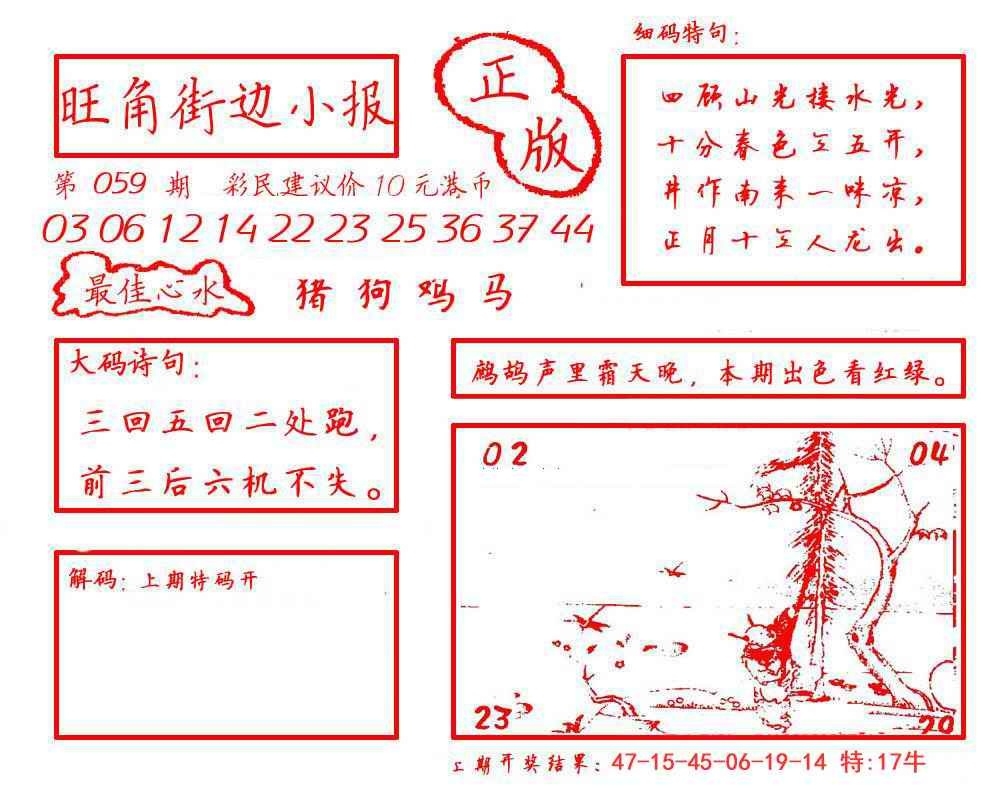 细码特句：
旺角街边小报
正版
第 059 期 彩民建议价 10 元港币
03 06 12 14 22 23 25 36 37 44
最佳心水 猪 狗 鸡 马
四顾山光接水光，
十分春色至五开，
井作南来一味凉，
正月十五人龙出。
大码诗句：
三回五回二处跑，
前三后六机不失。
鹧鸪声里霜天晚，本期出色看红绿。
02 04
23 20
解码：上期特码开
上期开奖结果：47-15-45-06-19-14 特:17牛